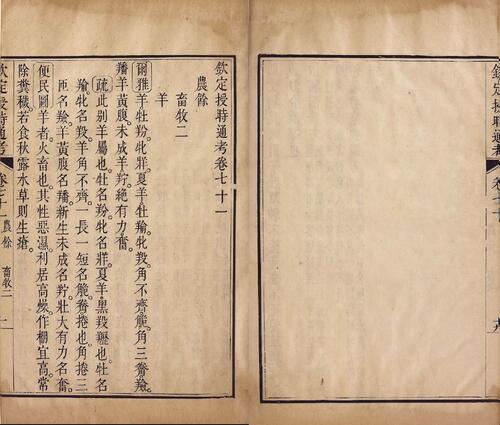 欽定授時通考
欽定授時通考卷七十一
農餘
畜牧二
羊
爾雅羊牡羒。牝牂。夏羊牡羭。牝羖。角不齊觤。角三觠羷。
羳羊黃腹。未成羊羜。絕有力奮。
疏此別羊屬也。牡名羒。牝名牂。夏羊黑羖䍽也。牡名
羭。牝名羖。羊角不齊。一長一短名觤。觠捲也。角捲三
匝名羷。羊黃腹名羳。新生未成名羜。壯大有力名奮。
便民圖羊者。火畜也。其性惡濕。利居高燥。作棚宜高。常
除糞穢。若食秋露水草則生瘡。
欽定授時通考 卷七十一 農餘 畜牧二 一